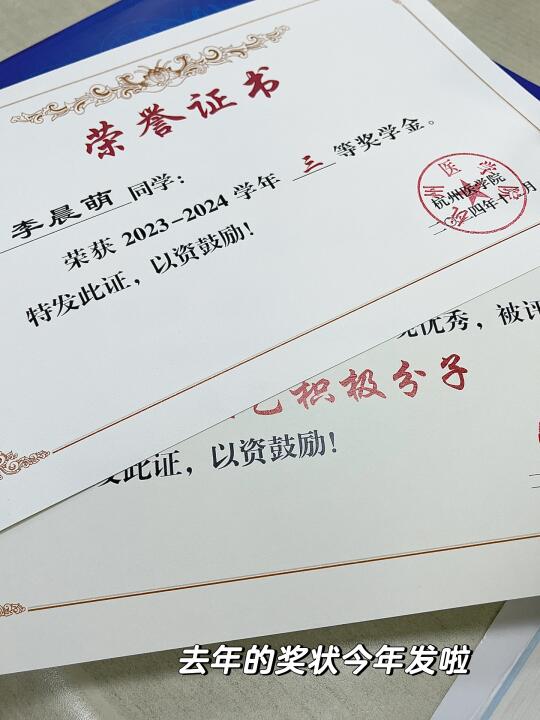 荣誉证书
李晨萌 同学：
荣获 2023-2024 学年 三 等奖学金。
特发此证，以资鼓励！
杭州医学院
二〇二四年十月
优秀，被评
积极分子
此证，以资鼓励！
去年的奖状今年发啦